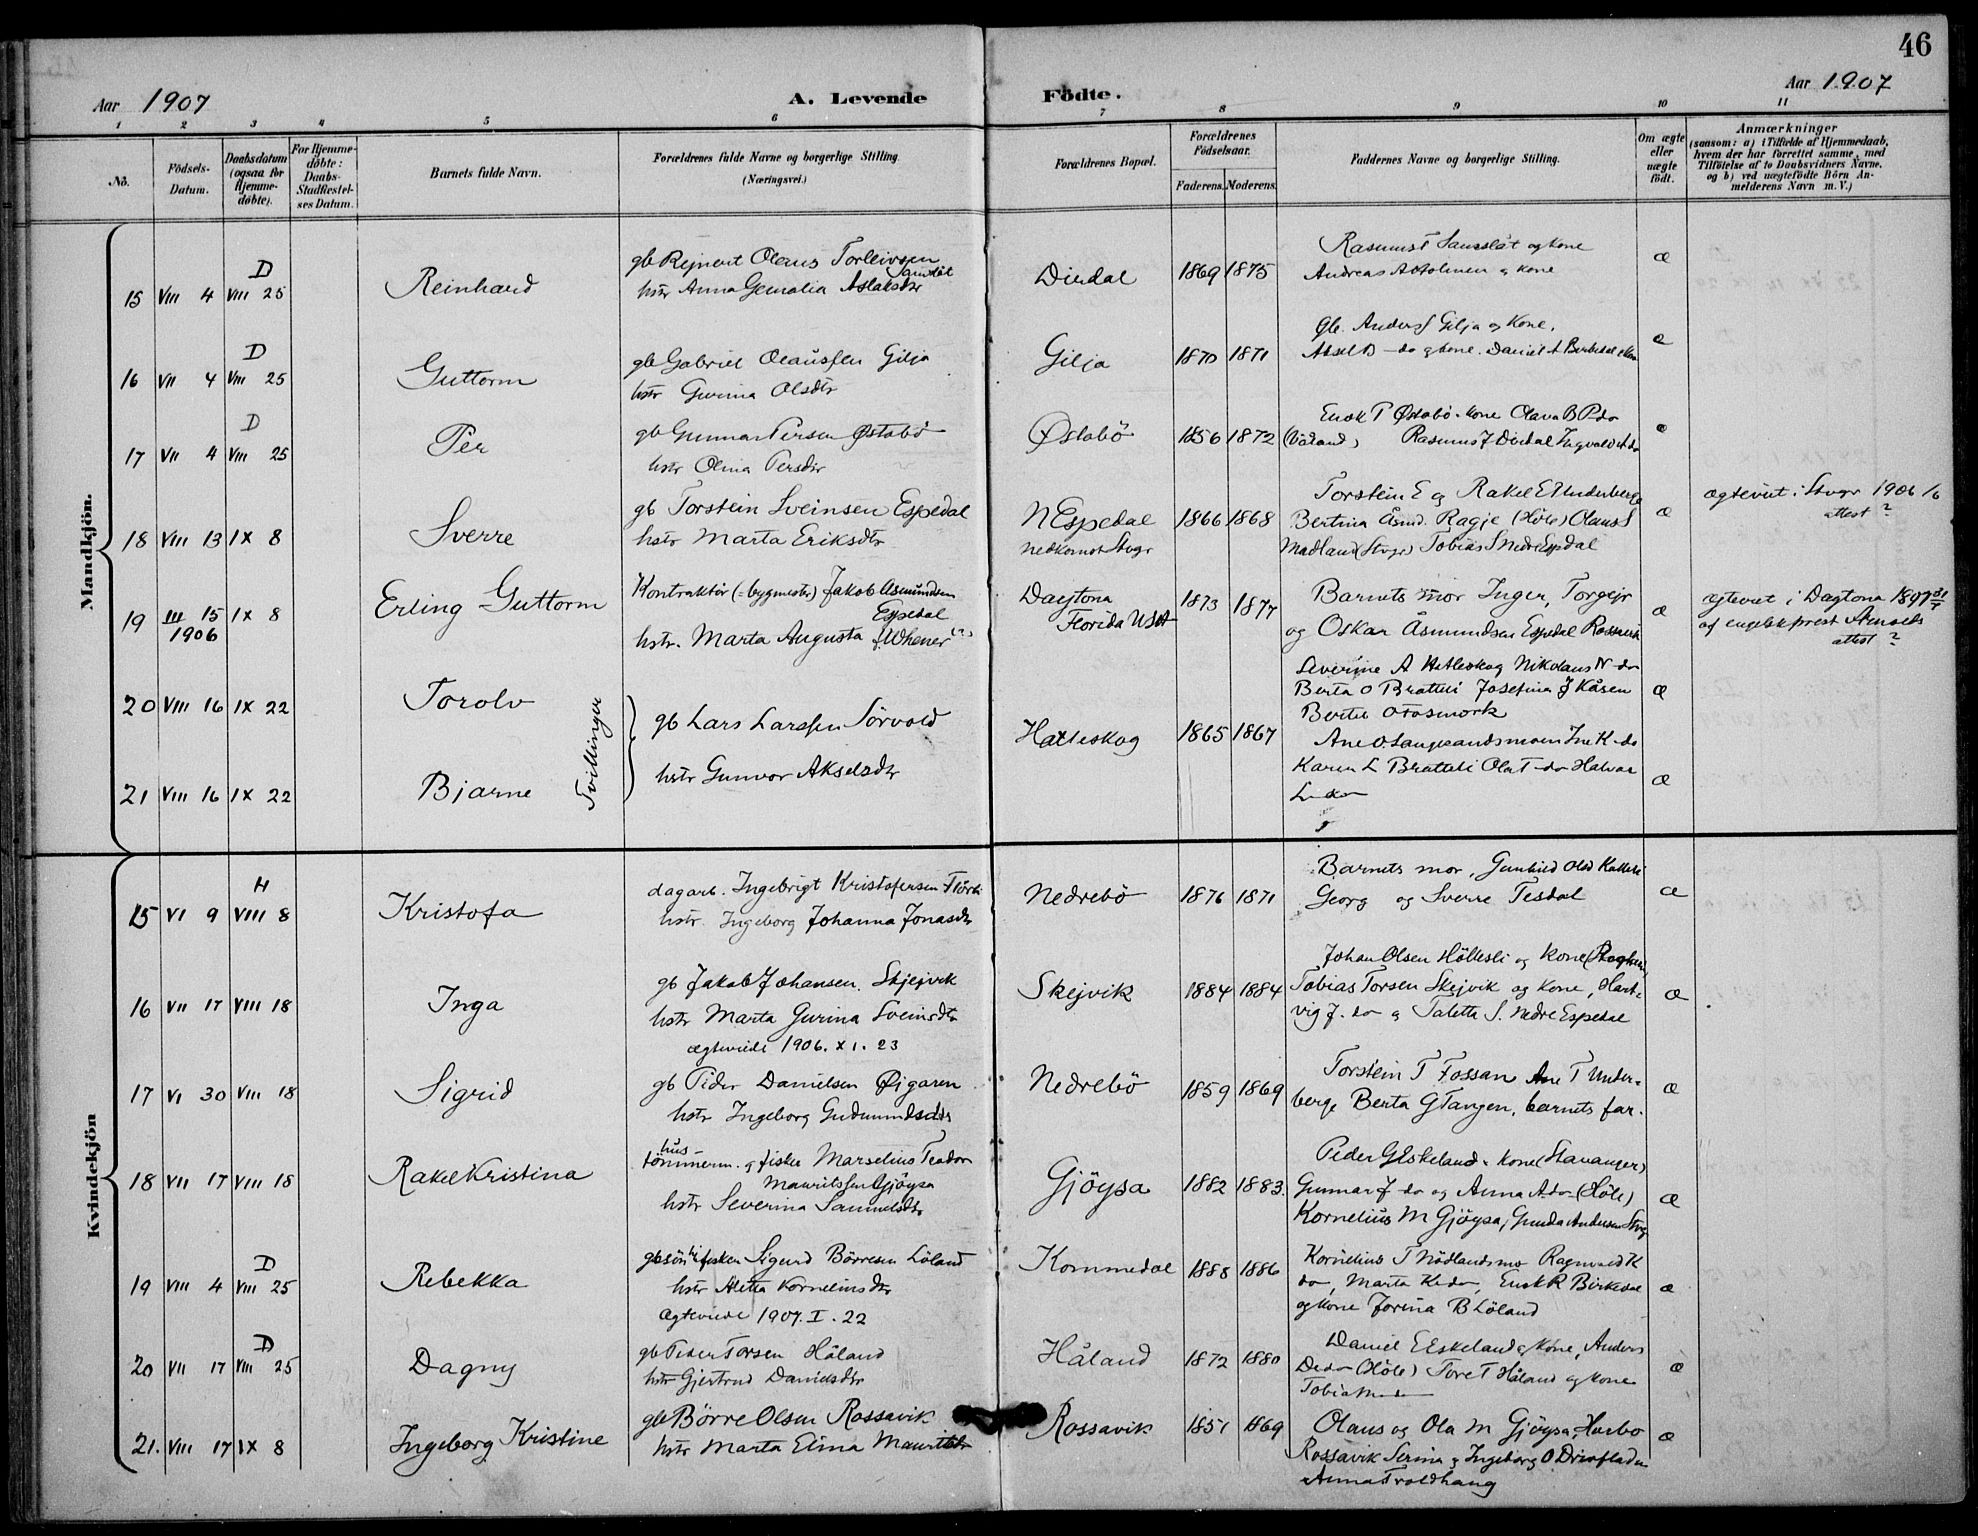 46
Aar 1907 A. Levende Födte. Aar 1907
1 2 3 4 5 6 7 8 9 10 11
No.
Födsels-
Datum.
Daabsdatum
(ogsaa for
Hjemme-
døbte).
For Hjemme-
døbte:
Daabs-
Stadfæstel-
ses Datum.
Barnets fulde Navn.
Forældrenes fulde Navne og borgerlige Stilling.
(Næringsvei.)
Forældrenes Bopæl.
Forældrenes
Födselsaar.
Faderens. Moderens.
Faddernes Navne og borgerlige Stilling.
Om ægte
eller
uægte
født.
Anmærkninger
(saasom: a) i Tilfælde af Hjemmedaab,
hvem der har forrettet samme, med
Tilföielse af to Daabsvidners Navne.
og b) ved uægtefödte Börn An-
melderens Navn m. V.)
Mandkjön.
15 VIII 4 D VIII 25 Reinhard
gb Rejnert Olaus Torleivsen
hstr Anna Aslaksdtr
Dirdal 1869 1875
Rasmus T og kone
Andreas og kone
æ
16 VII 4 D VIII 25 Guttorm
gb Gabriel Olaussen Gilja
hstr Gurina Olsdtr
Gilja 1870 1871
Gb. Anders Gilja og Kone,
Aksel B do og kone. Daniel A Birkedal
æ
17 VII 4 D VIII 25 Per
gb Gunnar Persen Østabö
hstr Olina Persdtr
Østabö 1856 1872
Enok T Østabö kone Olava B P do
Rasmus J Dirdal Ingvald A do
æ
18 VIII 13 IX 8 Sverre
gb Torstein Sveinsen Espedal
hstr Marta Eriksdtr
N Espedal
nedkomst Stvgr
1866 1868
Torstein E og Rakel E Underberge
Bertina Åsmd. Ragje (Höle) Olaus S
Madland (Stvgr) Tobias S Nedre Espdal
æ
ægteviet i Stvgr 1906
attest ?
19 III 15
1906
IX 8 Erling Guttorm
Kontraktör (= bygmester) Jakob Asmundsen
Espedal
hstr. Marta Augusta f. Whener (?)
Daytona
Florida USA
1873 1877
Barnets mor Inger, Torgejr
og Oskar Åsmundsen Espedal Rossavik
æ
ægteviet i Daytona 1897
af engelsk prest
attest ?
20 VIII 16 IX 22 Torolv
21 VIII 16 IX 22 Bjarne
Tvillinger
gb Lars Larssen Sörvold
hstr Gunvor Akselsdtr
Hatleskog 1865 1867
Severine A Hetleskog Nikolaus N do
Berta O Bratteli Josefina J Kåsen
Bertel O Fosmork
æ
Ane O. Laugesandsmoen Ine K do
Karen L Bratteli Ola T do Halvar
L do
æ
Kvindekjön
15 VI 9 H VIII 8 Kristofa
dagarb. Ingebrigt Kristofersen
hstr. Ingeborg Johanna Jonasdtr
Nedrebö 1876 1871
Barnets mor,
Georg og Sverre Tesdal
æ
16 VII 17 VIII 18 Inga
gb Jakob Johansen Skjejvik
hstr Marta Gurina Sveinsdtr
ægteviede 1906. XI. 23
Skejvik 1884 1884
Johan Olsen Hölleslí og kone
Tobias Torsen Skejvik og kone, Hart-
vig J. do og Taletta S. Nedre Espedal
æ
17 VI 30 VIII 18 Sigrid
gb Peder Danielsen Øigaren
hstr Ingeborg Gudmundsdtr
Nedrebö 1859 1869
Torstein T Fossan Ane T Under-
berge Berta G Tangen, barnets far.
æ
18 VII 17 VIII 18 Rakel Kristina
hus-
tömmerm. og fisker Marselius Teodor
Mauritssen Gjöysa
hstr Severina Samuelsdtr
Gjöysa 1882 1883.
Peder G Eskeland kone (Stavanger)
Gunnar J do og Anna A do (Höle)
Kornelius M Gjöysa, Gunda Andersen Stvgr
æ
19 VIII 4 D VIII 25 Rebekka
gbsön fisker Sigurd Börresen Löland
hstr Aletta Korneliusdtr
Ægteviede 1907. I. 22
Kommedal 1888 1886
Kornelius T Mödlandsmo Ragnvald K
do, Marta K do, Enok R Birkedal
og kone Jorina B Löland
æ
20 VII 17 D VIII 25 Dagny
gb Peder Torsen Håland
hstr Gjertrud Danielsdtr
Håland 1872 1880
Daniel E Eskeland og kone, Anders
D do (Höle) Tore T Håland og kone
Tobia
æ
21. VIII 17 IX 8 Ingeborg Kristine
gb Börre Olsen Rossavik
hstr Marta Elina Mauritsdtr
Rossavik 1851 1869
Olaus og Ola M Gjöysa, Harbo
Rossavik Serina og Ingeborg O Drivflaten
Anna Troldhaug
æ